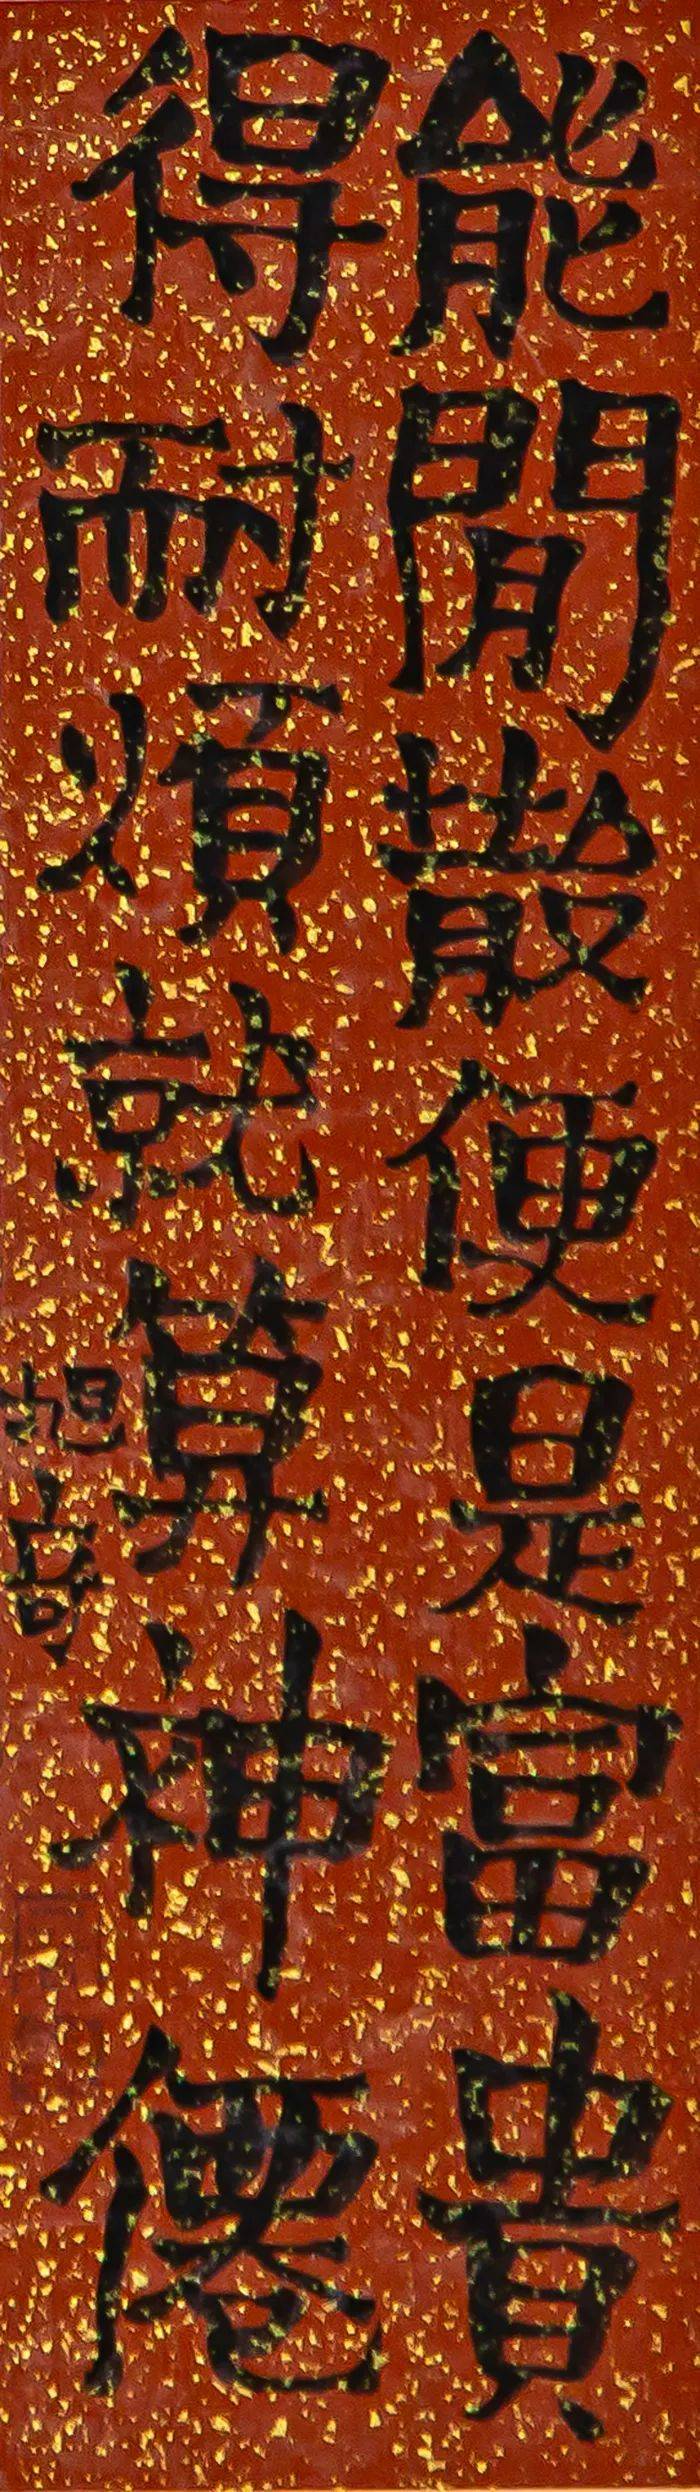 能閒散便是富貴
得耐煩就算神僊
旭奇